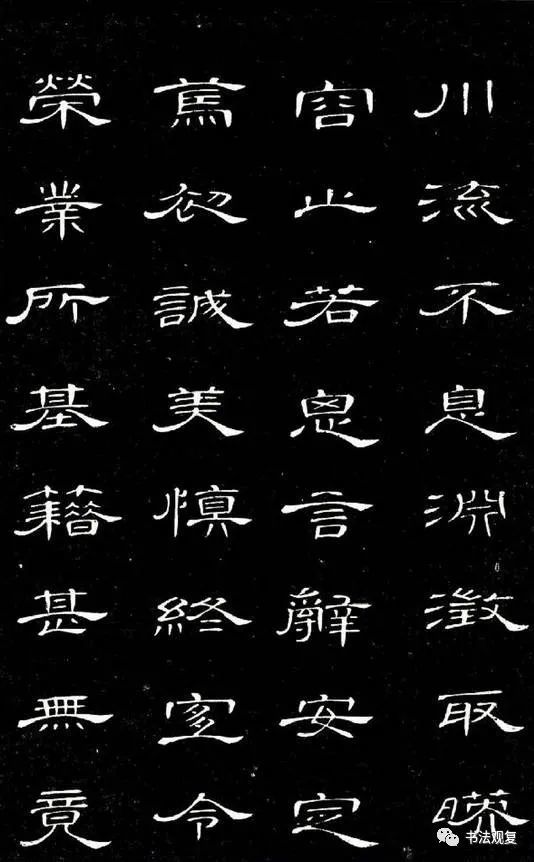 川流不息淵澂取暎
容止若思言辭安定
篤初誠美慎終宜令
榮業所基藉甚無竟
书法观复